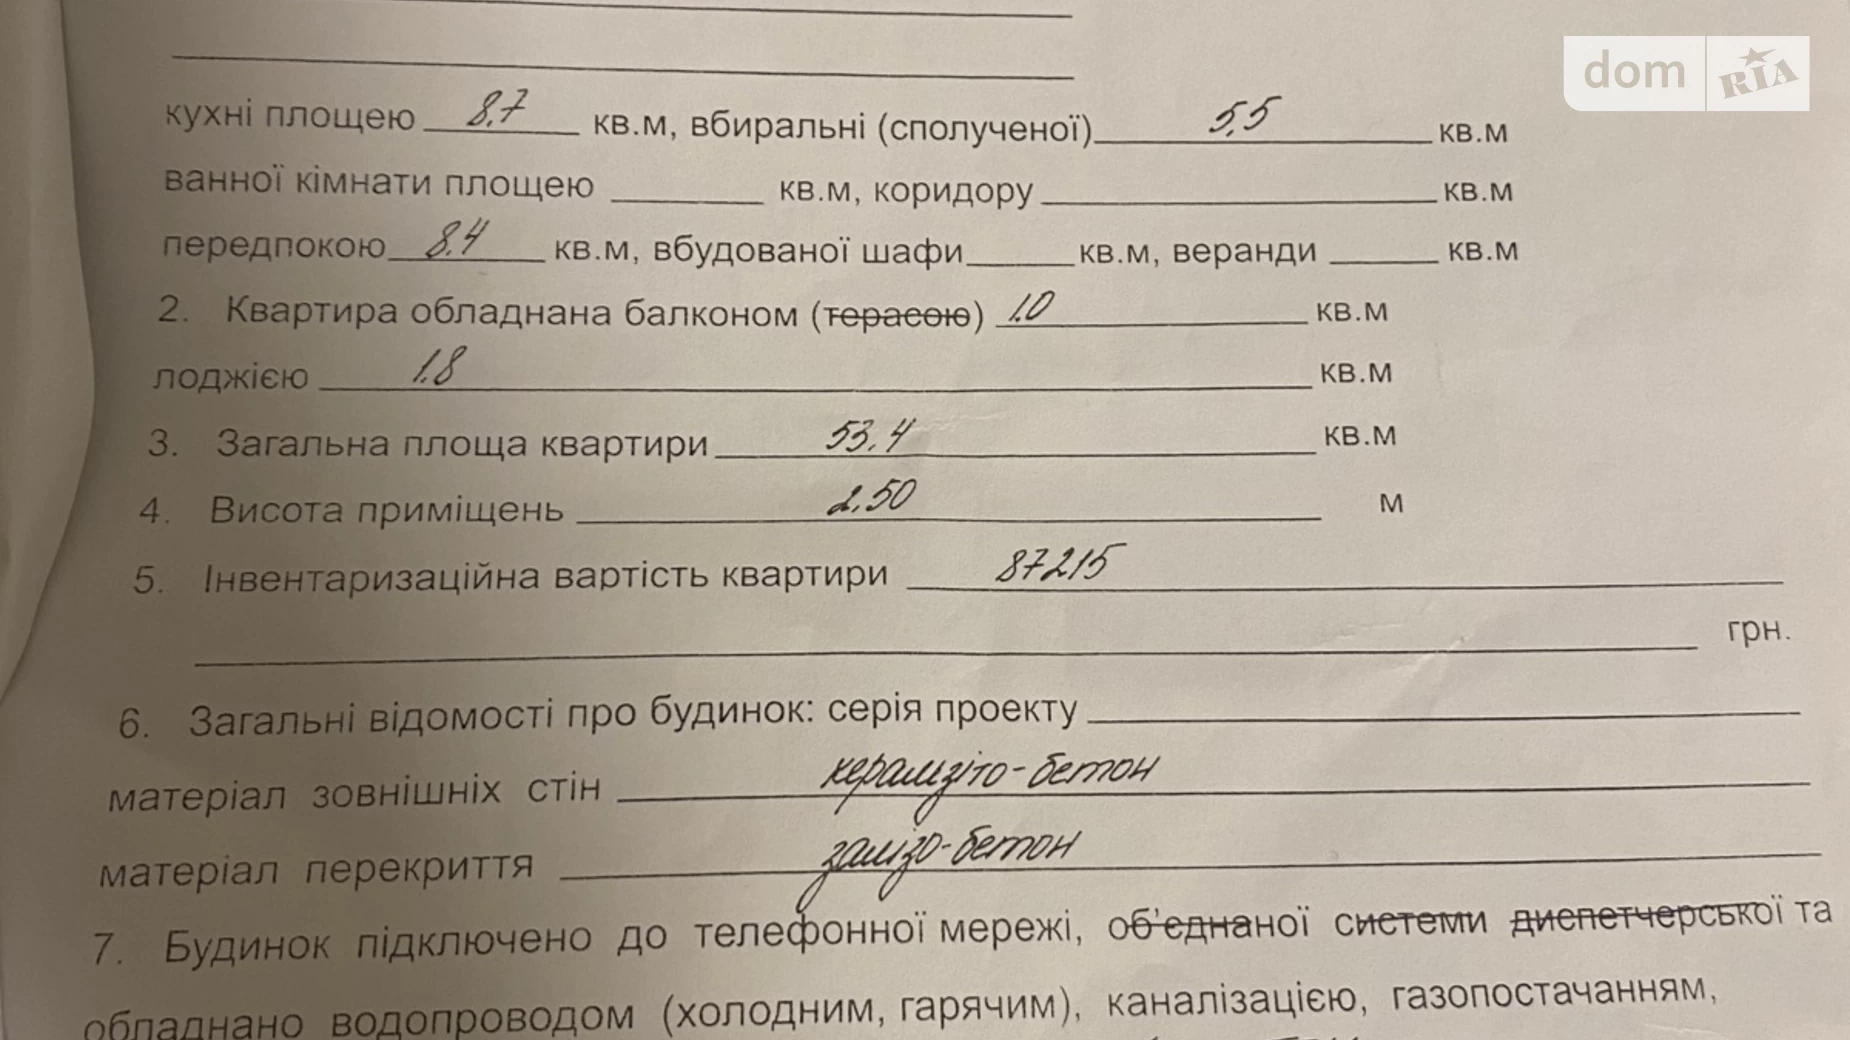 dom RIA
кухні площею 8,7 кв.м, вбиральні (сполученої) 5,5 кв.м
ванної кімнати площею кв.м, коридору кв.м
передпокою 8.4 кв.м, вбудованої шафи кв.м, веранди кв.м
2. Квартира обладнана балконом (терасою) 1.0 кв.м
лоджією 1.8 кв.м
3. Загальна площа квартири 53.4 кв.м
4. Висота приміщень 2.50 м
5. Інвентаризаційна вартість квартири 87215
грн.
6. Загальні відомості про будинок: серія проекту
матеріал зовнішніх стін керамзіто-бетон
матеріал перекриття залізо-бетон
7. Будинок підключено до телефонної мережі, об'єднаної системи диспетчерської та
обладнано водопроводом (холодним, гарячим), каналізацією, газопостачанням,